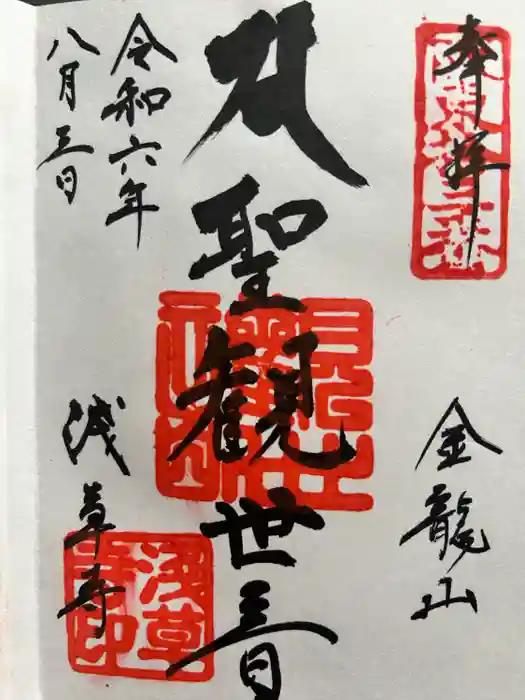 奉拝
金龍山
聖観世音
令和六年
八月三日
浅草寺
浅草寺印